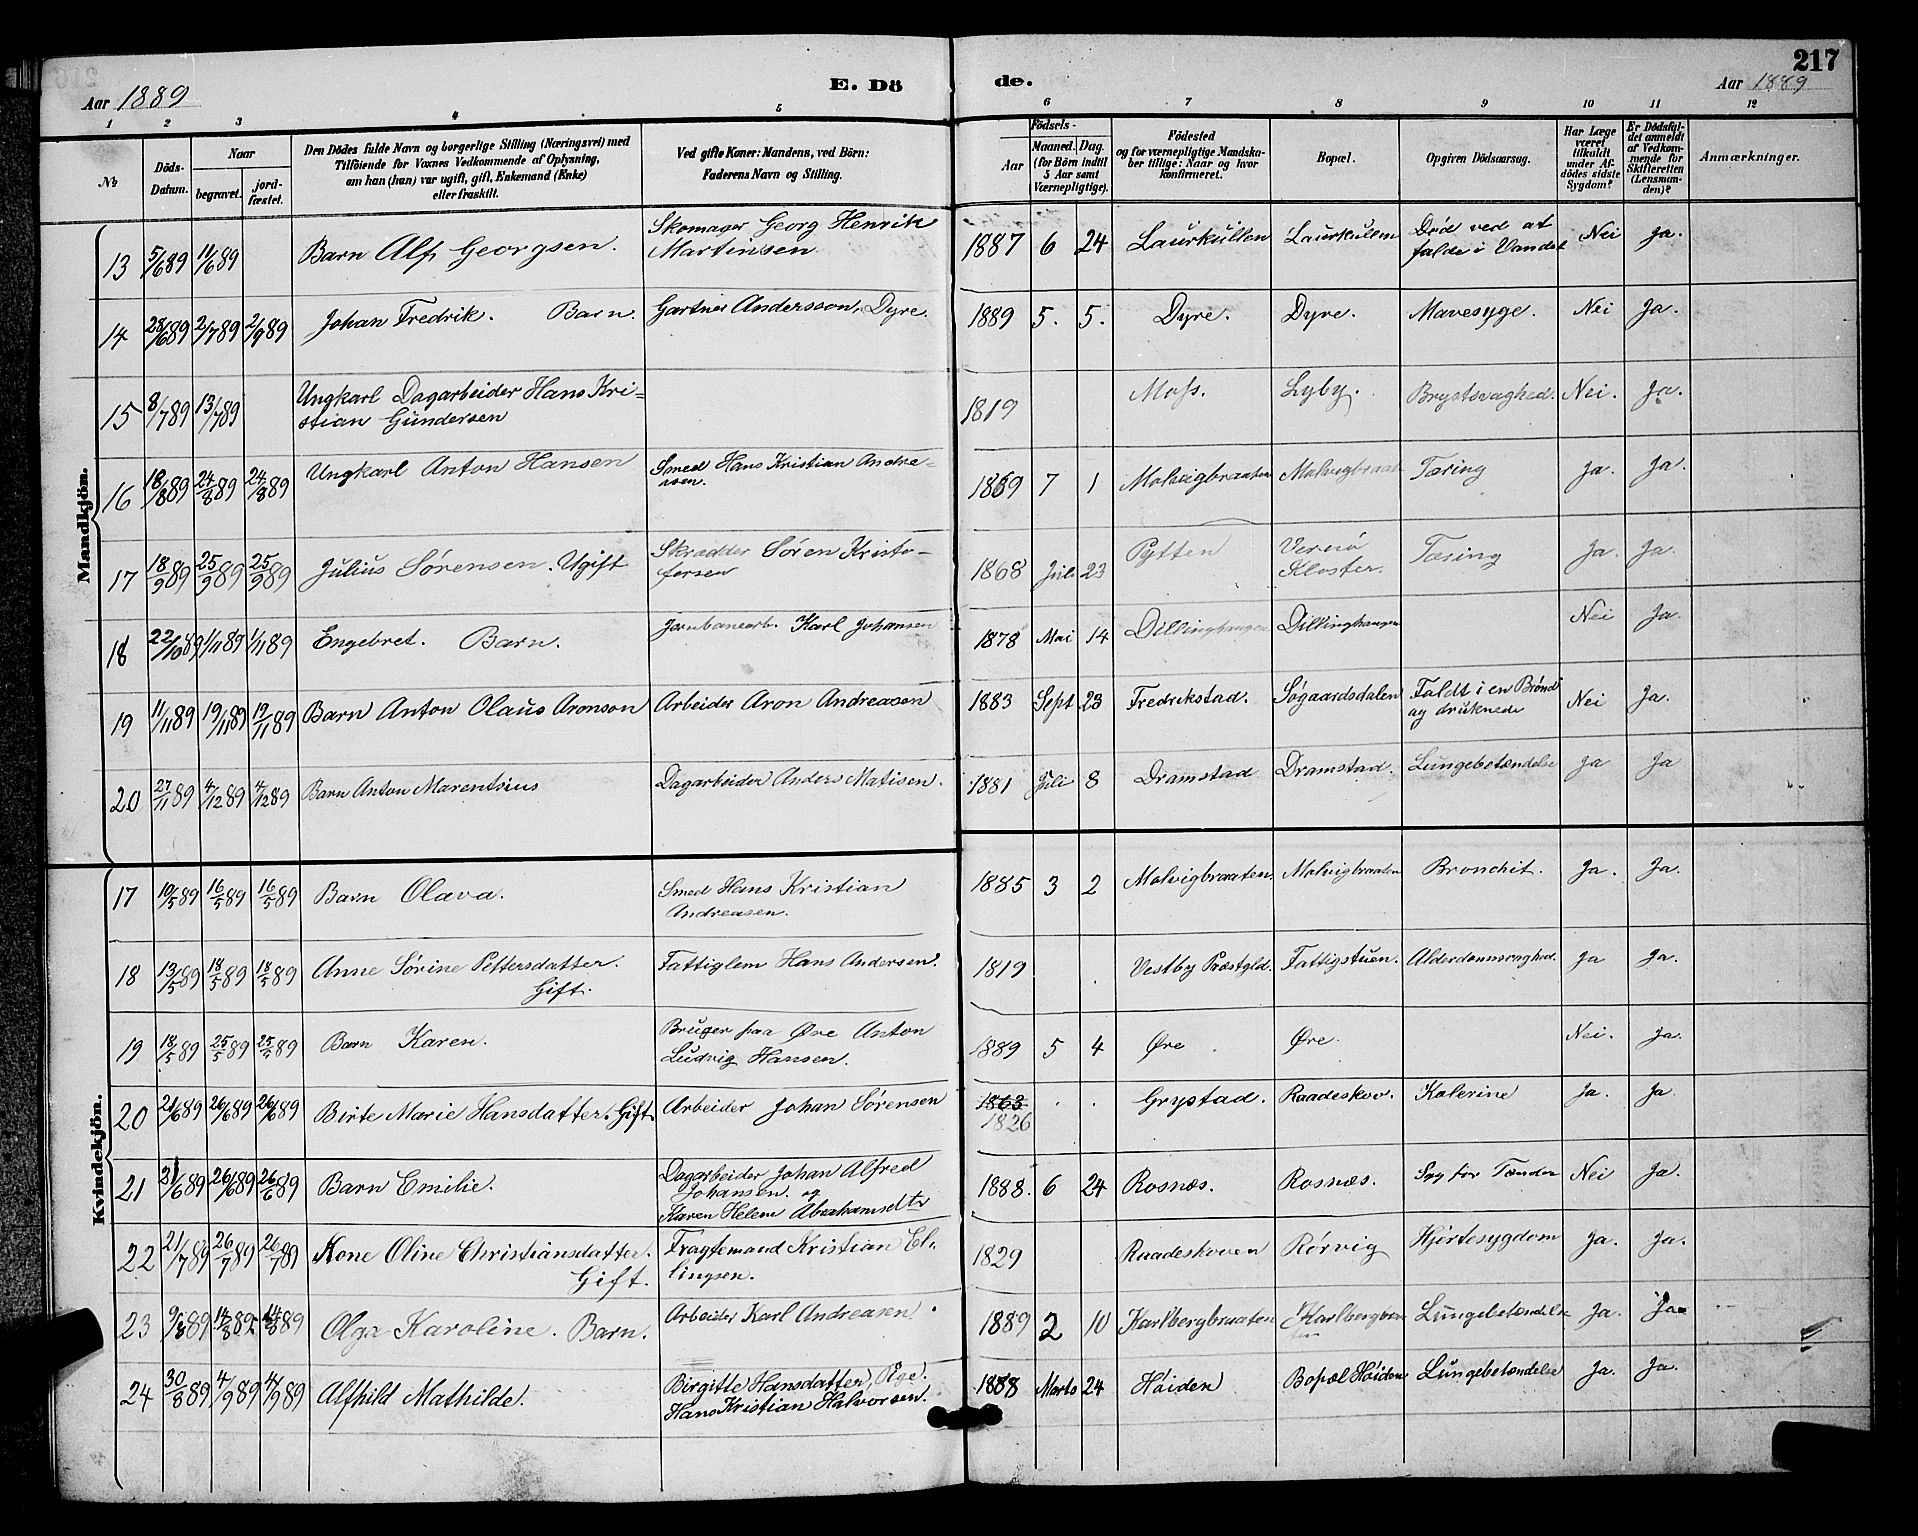 217
Aar 1889
E. Dö
de.
Aar 1889
1 2 3 4 5 6 7 8 9 10 11 12
№
Döds-
Datum.
Naar
begravet.
jord-
fæstet.
Den Dödes fulde Navn og borgerlige Stilling (Næringsvei) med
Tilföiende for Voxnes Vedkommende af Oplysning,
om han (hun) var ugift, gift, Enkemand (Enke)
eller fraskilt.
Ved gifte Koner: Mandens, ved Börn:
Faderens Navn og Stilling.
Födsels-
Aar
Maaned.
Dag.
(for Börn indtil
5 Aar samt
Værnepligtige).
Födested
og for værnepligtige Mandska-
ber tillige: Naar og hvor
konfirmeret.
Bopæl.
Opgiven Dödsaarsag.
Har Læge
været
tilkaldt
under Af-
dödes sidste
Sygdom?
Er Dödsfal-
det anmeldt
af Vedkom-
mende for
Skifteretten
(Lensman-
den)?
Anmærkninger.
Mandkjön.
13 5/6 89 11/6 89 Barn Alf Georgsen. Skomager Georg Henrik
Martinsen 1887 6 24 Laurkullen Laurkullen Död ved at
falde i Vandet Nei Ja.
14 28/6 89 2/7 89 2/9 89 Johan Fredrik. Barn. Gartner Andersson, Dyre. 1889 5. 5. Dyre. Dyre. Mavesyge. Nei Ja.
15 8/7 89 13/7 89 Ungkarl Dagarbeider Hans Kri-
stian Gundersen 1819 Moss. Lyby. Brystsvaghed. Nei. Ja.
16 18/8 89 24/8 89 24/8 89 Ungkarl Anton Hansen Smed Hans Kristian Andre-
asen. 1869 7 1 Molvigbraaten Molvigbraat Tæring Ja. Ja.
17 18/9 89 25/9 89 25/9 89 Julius Sørensen. Ugift Skrædder Søren Kristo-
fersen 1868 Juli 23 Pytten Vernö
Kloster. Tæring Ja. Ja.
18 22/10 89 1/11 89 1/11 89 Engebret. Barn. Jernbanearb. Karl Johansen 1878 Mai 14 Dillinghaugen Dillinghaugen Nei Ja.
19 11/11 89 19/11 89 19/11 89 Barn Anton Olaus Aronson Arbeider Aron Andreasen 1883 Sept 23 Fredrikstad. Søgaardsdalen Faldt i en Brønd
og druknede Nei Ja.
20 27/11 89 4/12 89 4/12 89 Barn Anton Marentsius Dagarbeider Anders Matisen. 1881 Juli 8 Dramstad Dramstad. Lungebetændelse Ja Ja
Kvindekjön.
17 10/5 89 16/5 89 16/5 89 Barn Olava. Smed Hans Kristian
Andreasen. 1885 3 2 Molvigbraaten. Molvigbraaten Bronchit. Ja. Ja.
18 13/5 89 18/5 89 18/5 89 Anne Sørine Pettersdatter.
Gift. Fattiglem Hans Andersen. 1819 Vestby Præstgld. Fattigstuen. Alderdomssvaghed. Ja Ja.
19 18/5 89 25/5 89 25/5 89 Barn Karen. Bruger paa Øre Anton
Ludvig Hansen. 1889 5 4 Øre Øre. Nei. Ja.
20 21/6 89 26/6 89 26/6 89 Birte Marie Hansdatter. Gift Arbeider Johan Sørensen 1863
1826 Grystad. Raadeskov. Kolerine Ja. Ja.
21 21/6 89 26/6 89 26/6 89 Barn Emilie. Dagarbeider Johan Alfred
Johansen. og
Karen Helene Abrahamsdtr 1888. 6 24 Rosnæs. Rosnæs. Syg for Tænder Nei Ja.
22 21/7 89 26/7 89 26/7 89 Kone Oline Christiansdatter.
Gift. Fragtemand Kristian El-
lingsen. 1829 Raadeskoven Rørvig Hjertesygdom Ja. Ja.
23 9/8 89 14/8 89 14/8 89 Olga Karoline. Barn. Arbeider Karl Andreasen. 1889 2 10 Karlbergbraaten Lungebetændelse Ja. Ja
24 30/8 89 4/9 89 4/9 89 Alfhild Mathilde. Birgitte Hansdatter, Pige.
Hans Kristian Halvorsen. 1888 Marts 24 Høiden Bopæl Høiden Lungebetændelse Ja. Ja.